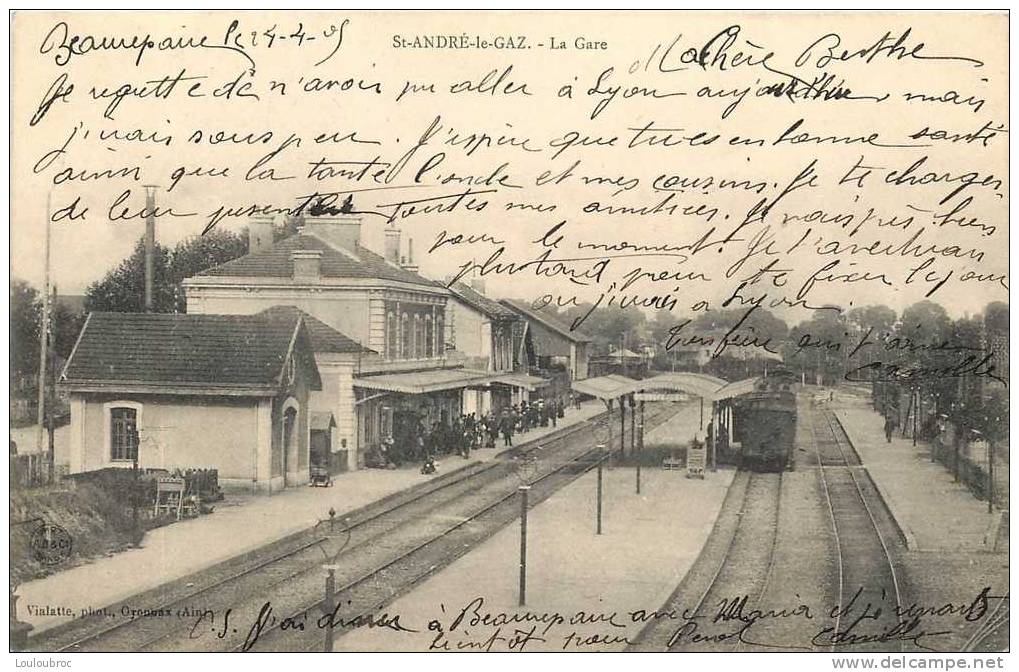 Beaurepaire le 24-4-05
St-ANDRÉ-le-GAZ. - La Gare
Ma Chère Berthe
Je regrette de n'avoir pu aller à Lyon aujourd'hui mais
j'irais sous peu. J'espère que tu es en bonne santé
ainsi que la tante l'oncle et mes cousins. Je te charge
de leur présenter toutes mes amitiés. Je vais très bien
pour le moment. Je t'avertirai
plus tard pour te fixer le jour
où j'irais à Lyon
Ton frère qui t'aime
Camille
Vialatte, phot., Oyonnax (Ain)
P.S. J'ai dîné à Beaurepaire avec Maria et je repars
bientôt pour
Camille
Louloubroc
www.delcampe.net